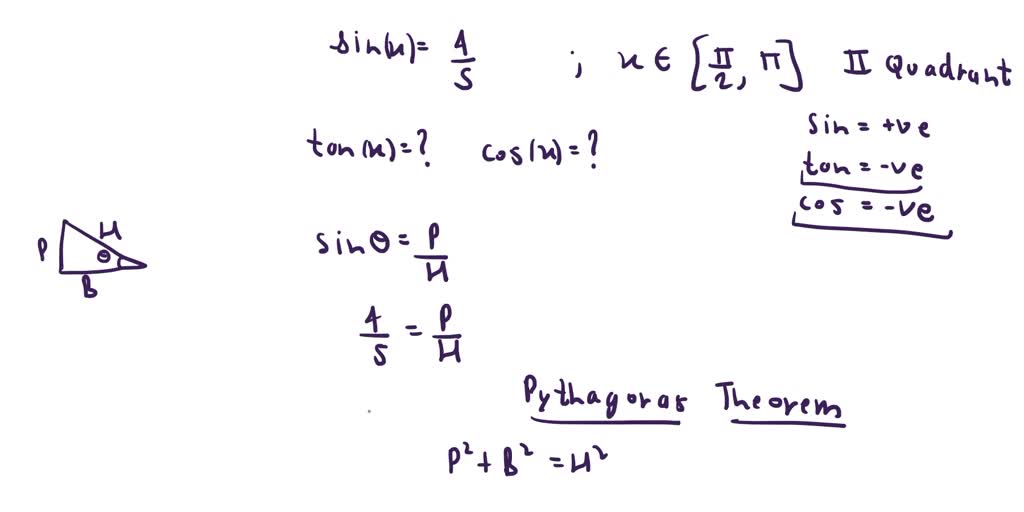 sin(x) = 4/5 ; x ∈ [π/2, π] II Quadrant
sin = +ve
tan(x) = ? cos(x) = ?
tan = -ve
cos = -ve
P H θ B
sin θ = P/H
4/5 = P/H
Pythagoras Theorem
P² + B² = H²